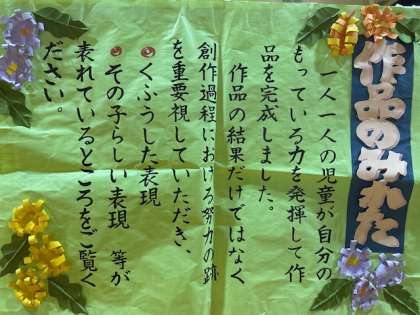 作品のみかた
一人一人の児童が自分の
もっている力を発揮して作
品を完成しました。
作品の結果だけではなく
創作過程における努力の跡
を重要視していただき、
くふうした表現
その子らしい表現 等が
表れているところをご覧く
ださい。